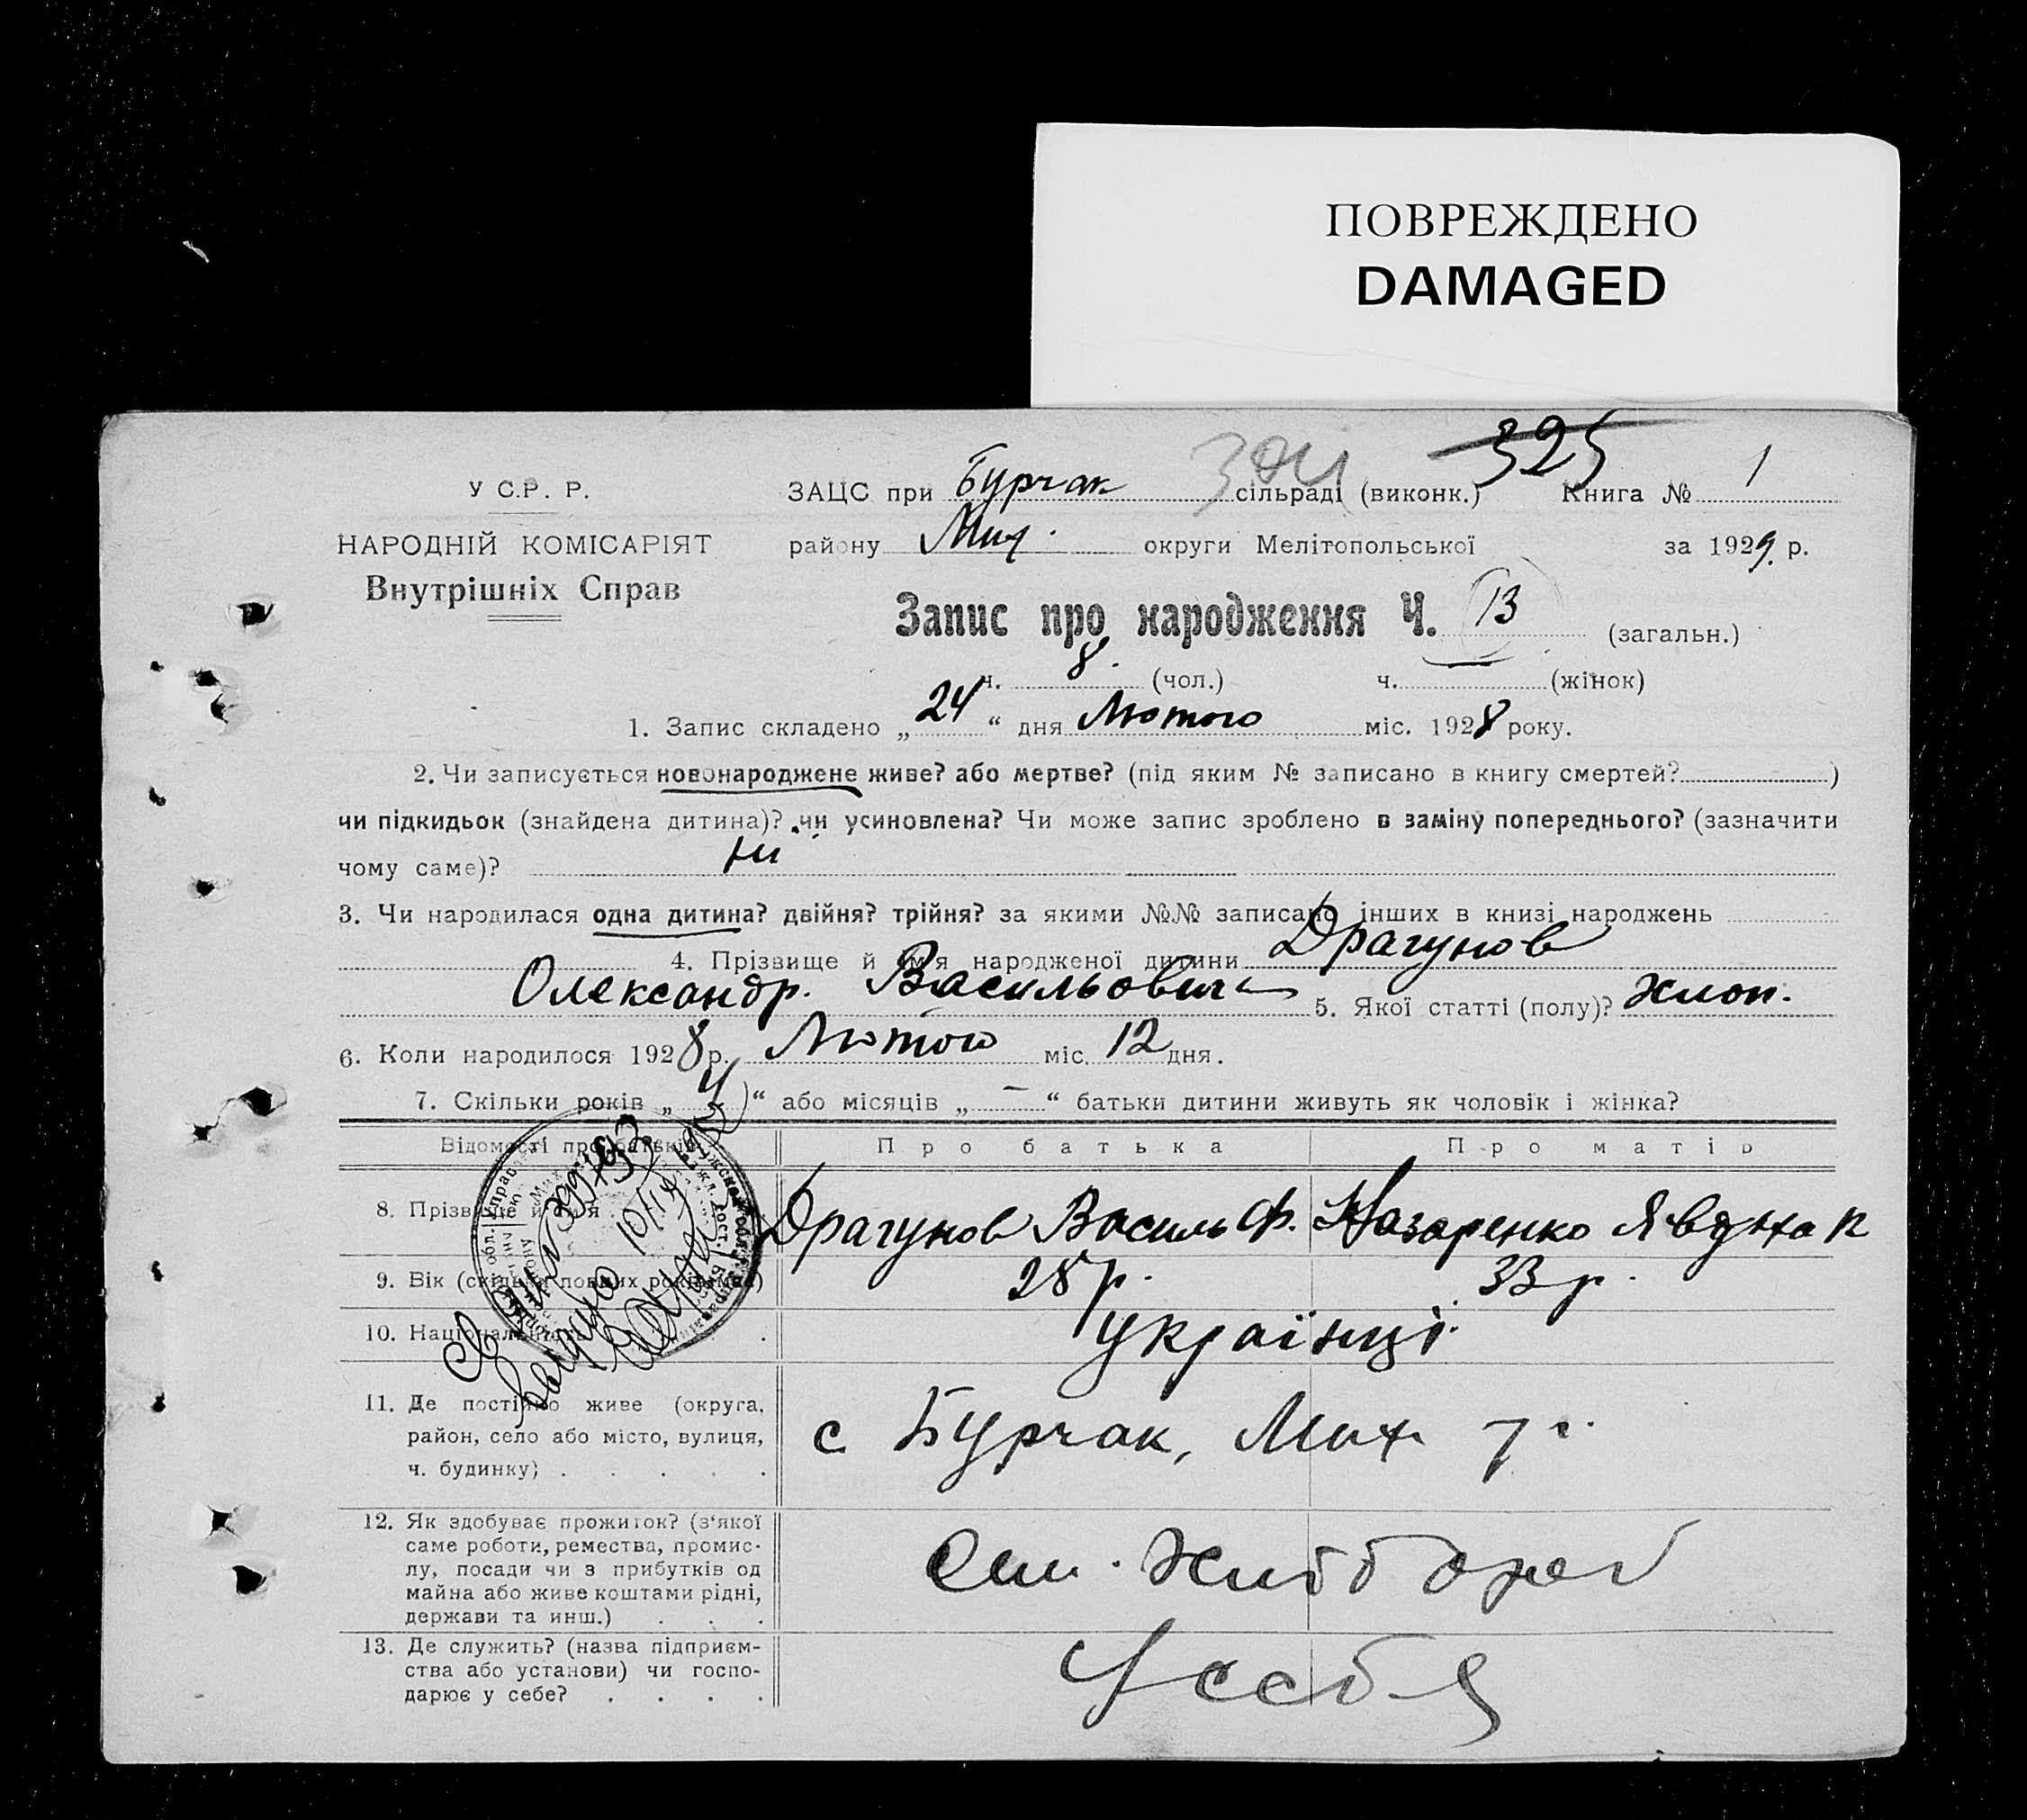 ПОВРЕЖДЕНО
DAMAGED
325
У С.Р. Р.
ЗАЦС при Бурчак сільраді (виконк.) Книга № 1
НАРОДНІЙ КОМІСАРІЯТ
району Мих. округи Мелітопольської за 1929 р.
Внутрішніх Справ
Запис про народження Ч. 13 (загальн.)
ч. 8. (чол.) ч. (жінок)
1. Запис складено „24“ дня Лютого міс. 1928 року.
2. Чи записується новонароджене живе? або мертве? (під яким № записано в книгу смертей? )
чи підкидьок (знайдена дитина)? чи усиновлена? Чи може запис зроблено в заміну попереднього? (зазначити
чому саме)? ні
3. Чи народилася одна дитина? двійня? трійня? за якими №№ записано інших в книзі народжень
4. Прізвище й ім'я народженої дитини Драгунов
Олександр. Васильович 5. Якої статті (полу)? хлоп.
6. Коли народилося 1928 р. Лютого міс. 12 дня.
7. Скільки років „4“ або місяців „—“ батьки дитини живуть як чоловік і жінка?
Відомості про батьків Про батька Про матір
8. Прізвище й ім'я Драгунов Василь Ф. Назаренко Явдоха П
9. Вік (скільки повних років має) 28 р. 33 р.
10. Національність українці.
11. Де постійно живе (округа,
район, село або місто, вулиця,
ч. будинку) с Бурчак, Мих
12. Як здобуває прожиток? (з'якої
саме роботи, ремества, промис-
лу, посади чи з прибутків од
майна або живе коштами рідні,
держави та инш.) хлібороб
13. Де служить? (назва підприєм-
ства або установи) чи госпо-
дарює у себе? У себе